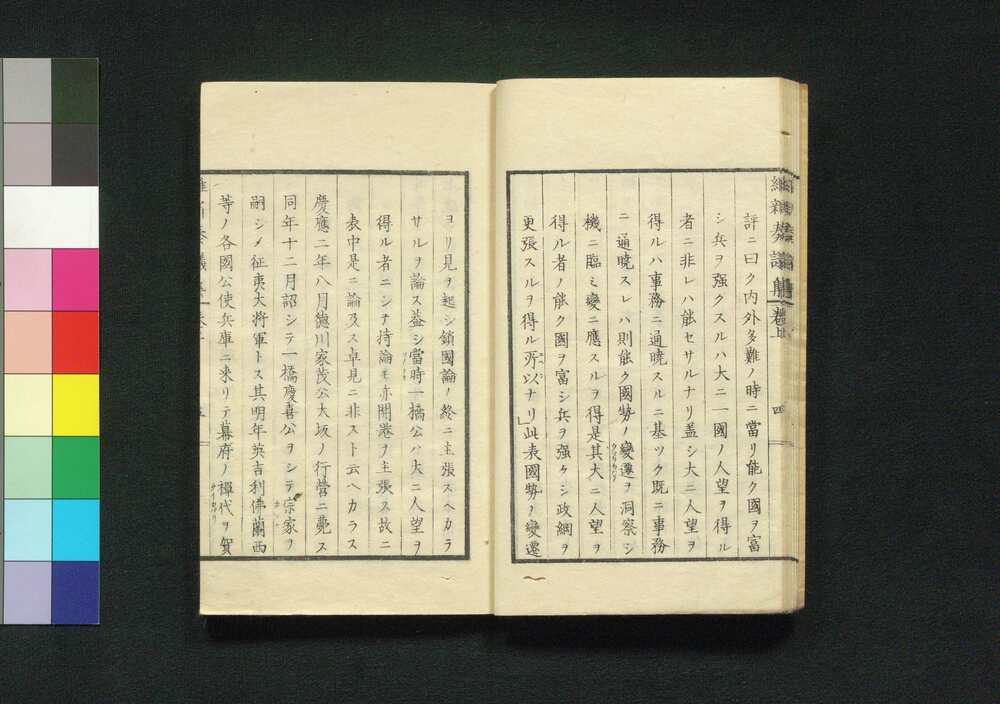 評ニ曰ク内外多難ノ時ニ當リ能ク國ヲ富
シ兵ヲ强クスルハ大ニ一國ノ人望ヲ得ル
者ニ非レハ能セサルナリ蓋シ大ニ人望ヲ
得ルハ事務ニ通曉スルニ基ツク既ニ事務
ニ通曉スレハ則能ク國勢ノ變遷ヲ洞察シ
機ニ臨ミ變ニ應スルヲ得是其大ニ人望ヲ
得ル者ノ能ク國ヲ富シ兵ヲ强クシ政綱ヲ
更張スルヲ得ル所以ナリ」此表國勢ノ變遷
ヨリ見ヲ起シ鎖國論ノ終ニ主張スヘカラ
サルヲ論ス蓋シ當時一橋公ハ大ニ人望ヲ
得ル者ニシテ持論モ亦開港ヲ主張ス故ニ
表中是ニ論及ス卓見ニ非スト云ヘカラス
慶應二年八月德川家茂公大坂ノ行營ニ薨ス
同年十二月詔シテ一橋慶喜公ヲシテ宗家ヲ
嗣シメ征夷大将軍トス其明年英吉利佛蘭西
等ノ各國公使兵庫ニ来リテ幕府ノ禪代ヲ賀
維新奏議集
卷上
四